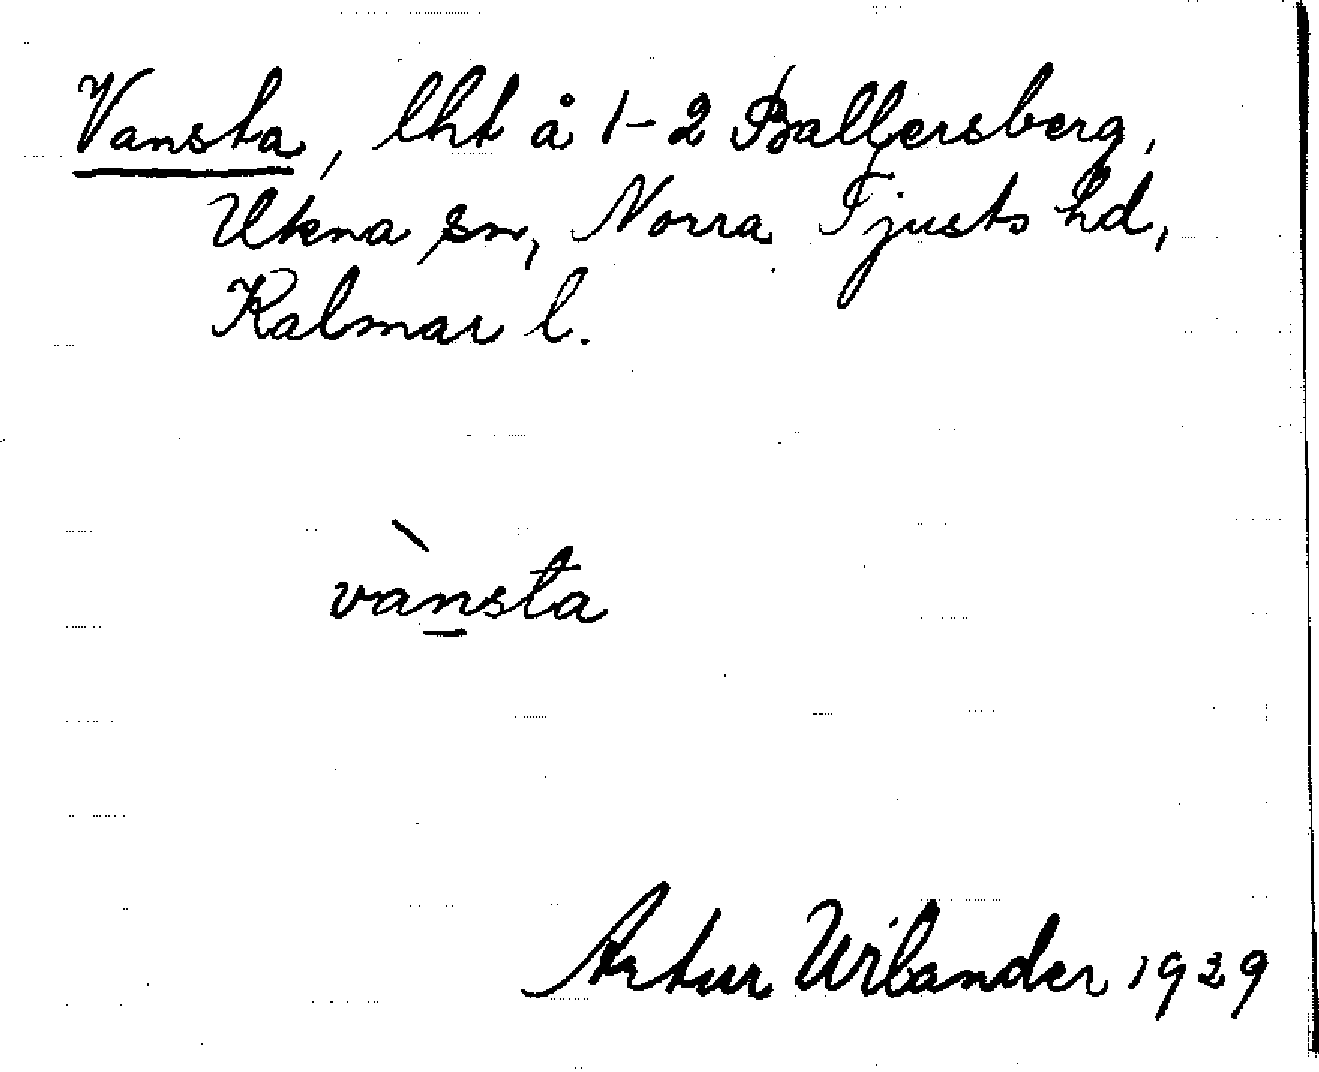 Vansta, lht å 1-2 Ballersberg,
Ukna sn, Norra Tjusts hd,
Kalmar l.
vànsta
Artur Wilander 1929